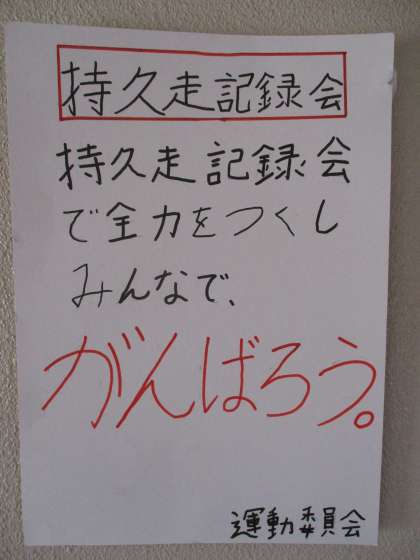 持久走記録会
持久走記録会
で全力をつくし
みんなで、
がんばろう。
運動委員会